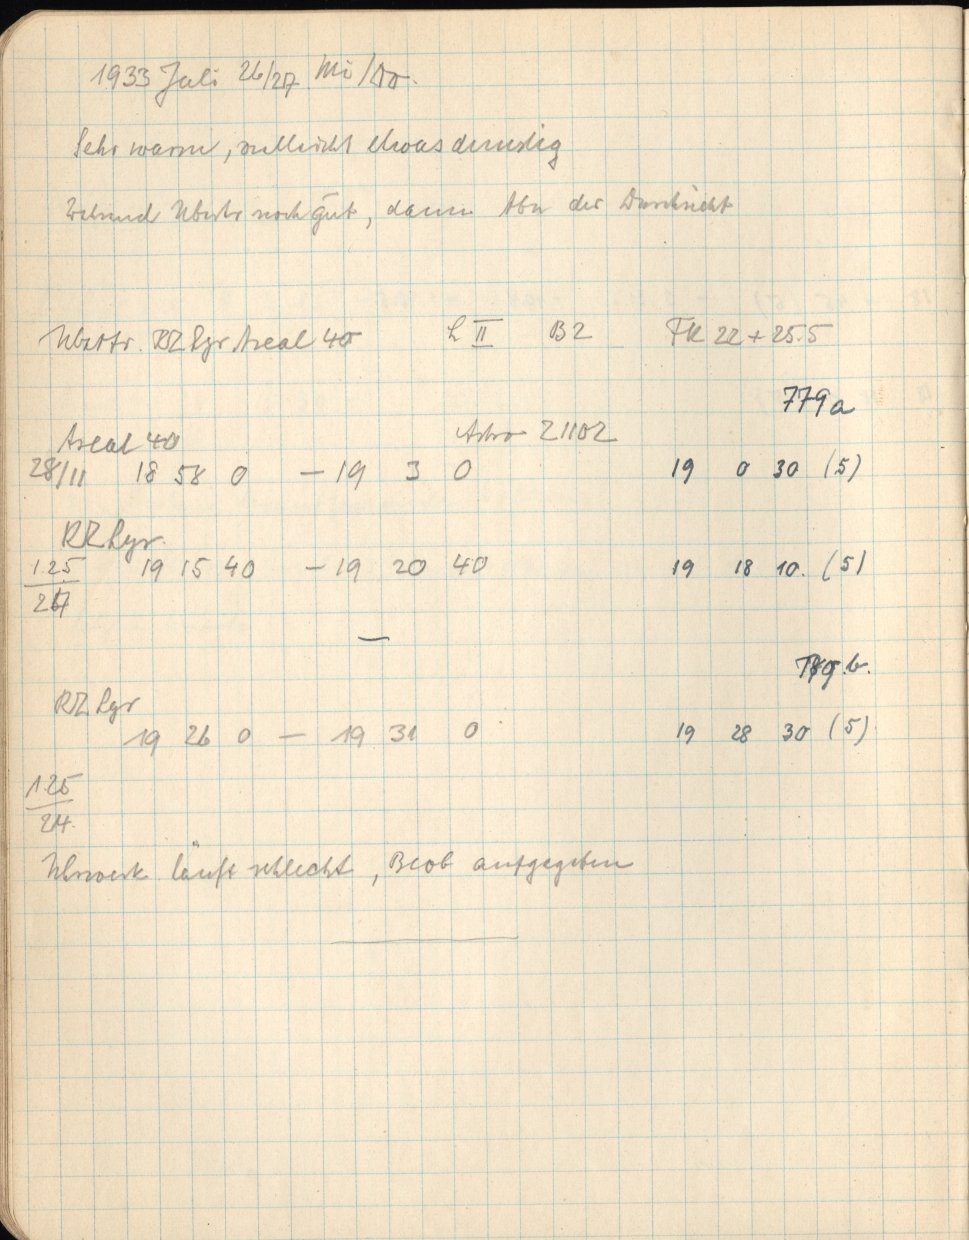 1933 Juli 26/27 Mi/Do.
Sehr warm, vielleicht etwas dunstig
Während Übertr noch gut, dann Abn der Durchsicht
Übertr. RZ Lyr Areal 40 L II B2 FK 22 + 25.5
779a
Areal 40 Astro 21102
28/11 18 58 0 — 19 3 0 19 0 30 (5)
RZ Lyr.
125 19 15 40 — 19 20 40 19 18 10. (5)
—
779 b.
RZ Lyr
19 26 0 — 19 31 0 19 28 30 (5)
125
24.
Uhrwerk läuft schlecht, Beob aufgegeben